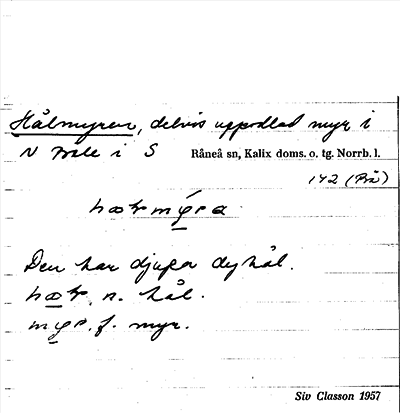 Hålmyren, delvis uppodlad myr i
N Prele i S Råneå sn, Kalix doms. o. tg. Norrb. l.
142 (Prå)
Den har djupa dyhål.
n. hål.
f. myr.
Siv Classon 1957